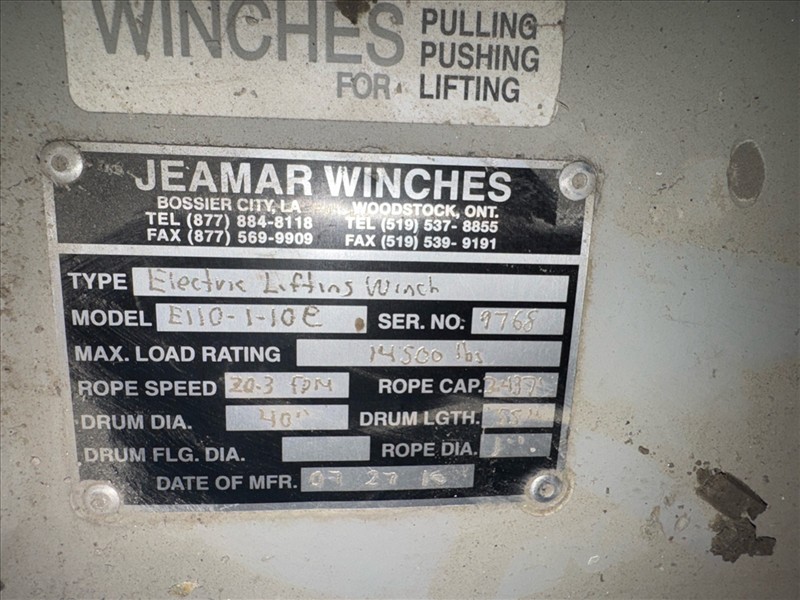 WINCHES PULLING
PUSHING
FOR LIFTING
JEAMAR WINCHES
BOSSIER CITY, LA WOODSTOCK, ONT.
TEL (877) 884-8118 TEL (519) 537-8855
FAX (877) 569-9909 FAX (519) 539-9191
TYPE Electric Lifting Winch
MODEL E110-1-10E SER. NO: 9768
MAX. LOAD RATING 14500 lbs
ROPE SPEED 20.3 fpm ROPE CAP.
DRUM DIA. 40" DRUM LGTH.
DRUM FLG. DIA. ROPE DIA.
DATE OF MFR. 07 27